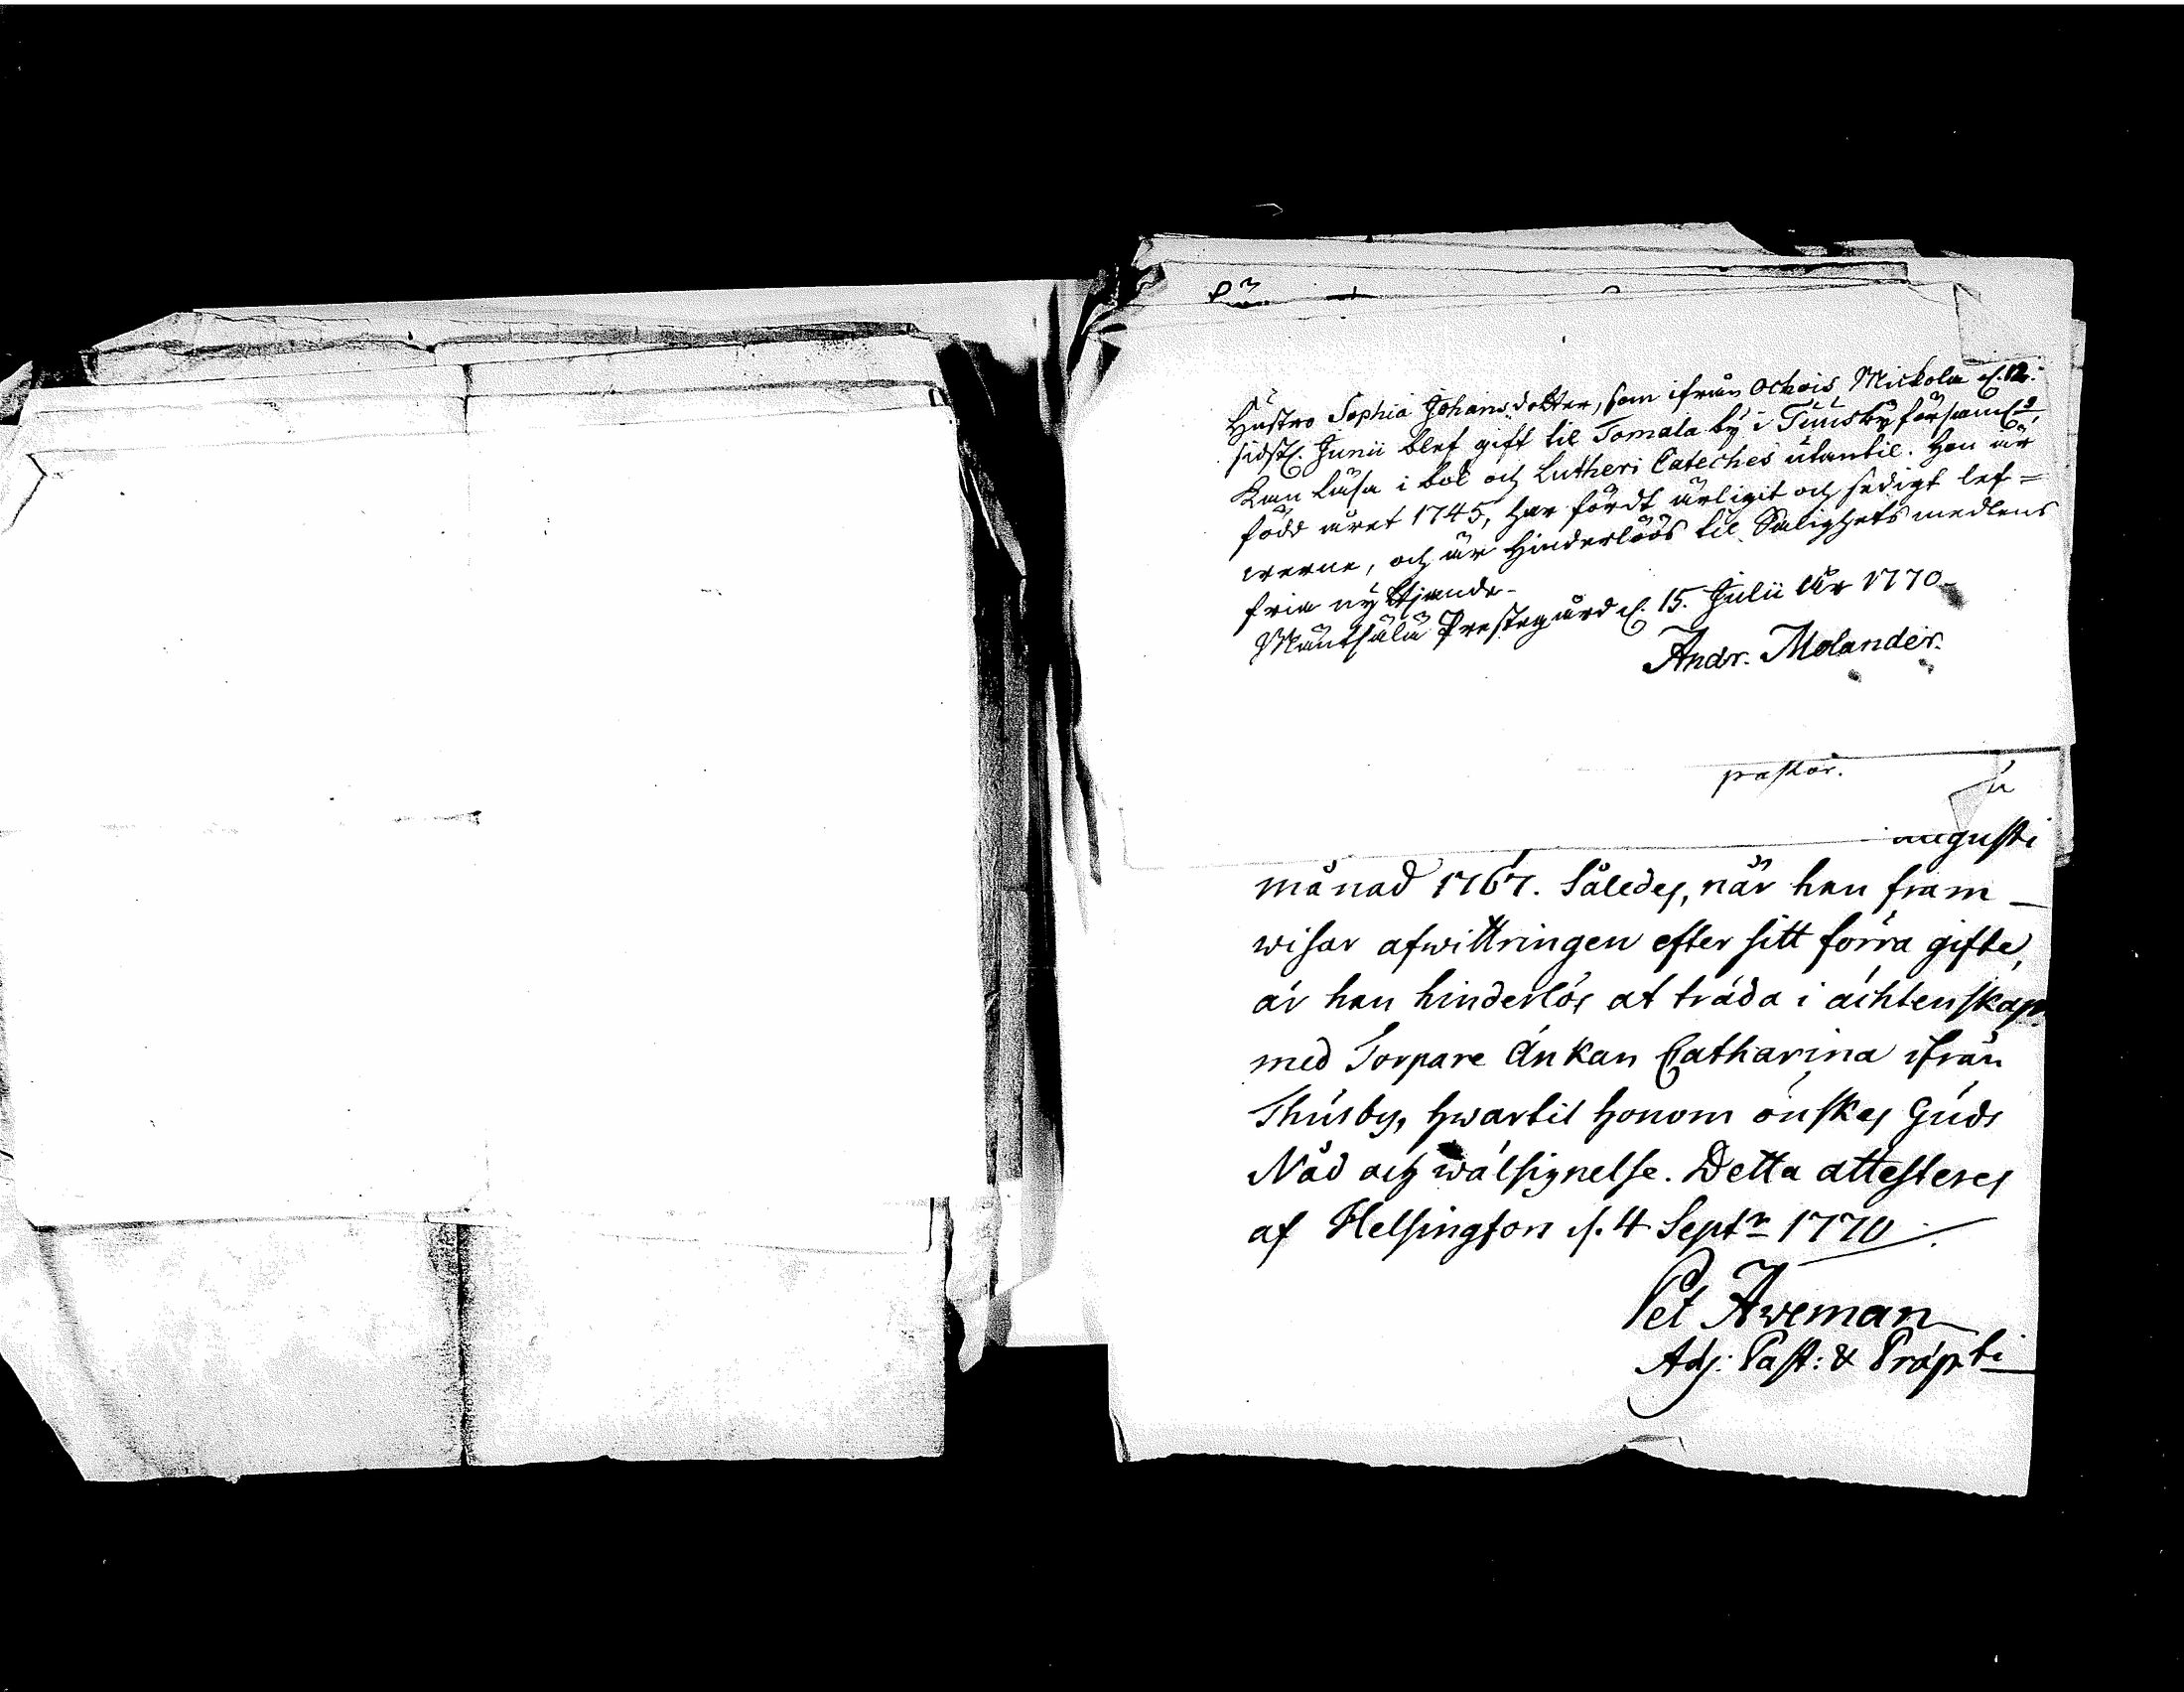 Hustro Sophia Johansdotter, som ifrån Ochois Mickola d. 12.
sidstl. Junii blef gift til Tomala by i Tuusby församl.g
kan läsa i bok och Lutheri Cateches utantil. Hon är
född året 1745, har fördt ärligit och sedigt lef=
werne, och är hinderlöös til Salighets medlens
fria nyttjande.
Mäntsälä Prestegård d. 15. Julii År 1770.
Andr. Molander.
pastor.
augusti
månad 1767. Således, när han fram-
wisar afwittringen efter sitt förra gifte,
är han hinderlös at träda i ächtenskap
med Torpare Änkan Catharina ifrån
Thusby, hwartil honom önskes Guds
Nåd och wälsignelse. Detta attesteres
af Helsingfors d. 4 Septr 1770
Pet Aweman
Adj: Past: & Præp.ti